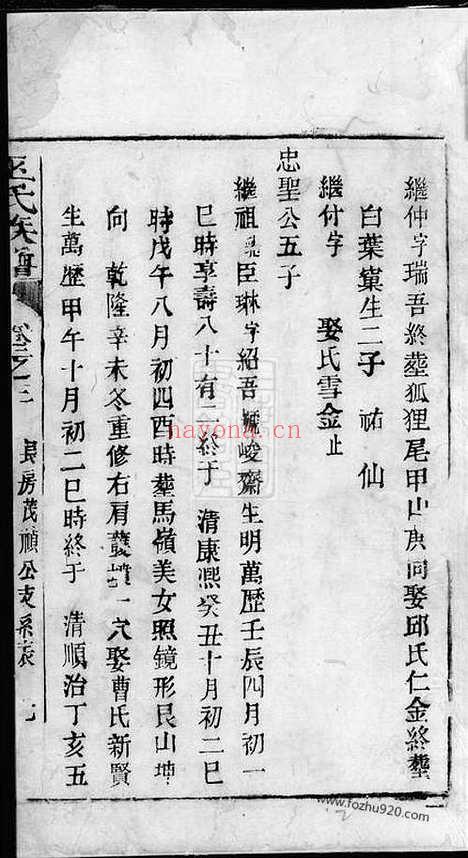 繼仲字瑞吾終塟狐狸尾甲山庚向娶邱氏仁金終塟
白葉窠生二子 祐 仙
繼付字 娶氏雪金止
忠聖公五子
繼祖 臣琳字紹吾號峻齋生明萬歷壬辰四月初一
巳時享壽八十有二終于 清康熙癸丑十月初二巳
時戊午八月初四酉時塟馬嶺美女照鏡形艮山坤
向 乾隆辛未冬重修右肩 一穴娶曹氏新賢
生萬歷甲午十月初二巳時終于 清順治丁亥五
氏族譜 卷之三 長房茂禎公支系表 七
hayona.cn
www.fozhu920.com